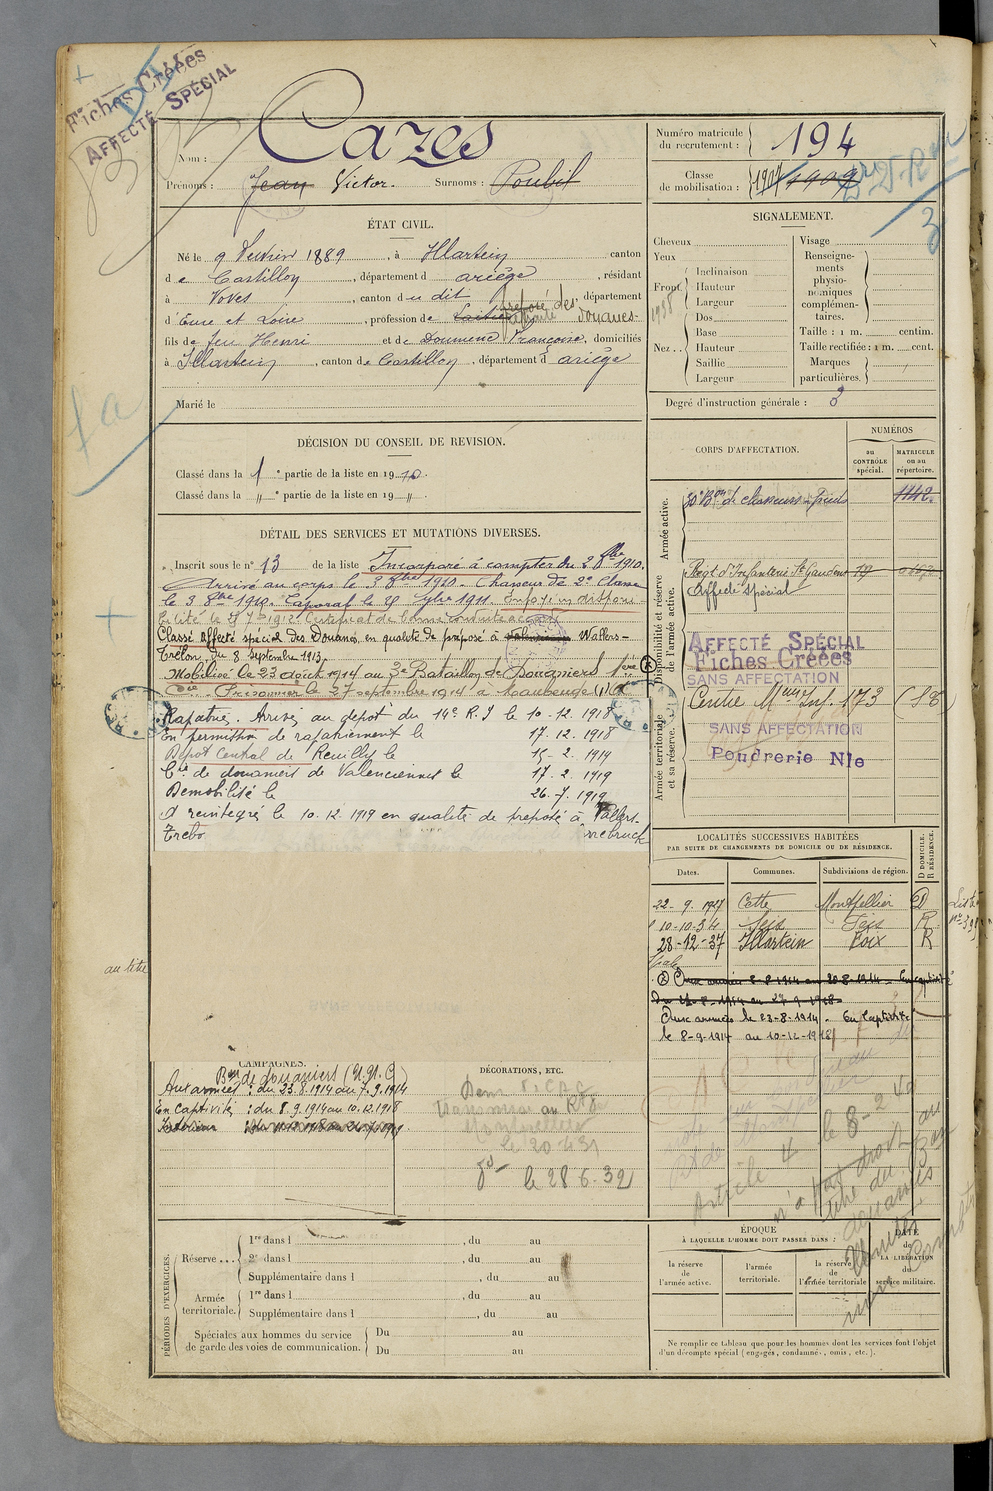 Fiches Créées
AFFECTÉ SPÉCIAL
Nom : Cazes
Prénoms : Jean Victor. Surnoms : Poubil
Numéro matricule du recrutement : 194
Classe de mobilisation : 1907 1909
ÉTAT CIVIL.
Né le 9 1889, à Illartein canton
de Castillon, département d ariège, résidant
à Voves, canton du dit, département
d'Eure et Loire, profession de préposé des douanes
retraité
fils de feu Henri et de Doumenc Françoise, domiciliés
à Illartein, canton de Castillon, département d'ariège
Marié le
SIGNALEMENT.
Cheveux
Yeux
Front
Inclinaison
Hauteur
Largeur
Nez
Dos
Base
Hauteur
Saillie
Largeur
Visage
Renseignements physionomiques complémentaires.
Taille : 1 m. centim.
Taille rectifiée : 1 m. cent.
Marques particulières.
1938
Degré d'instruction générale : 3
DÉCISION DU CONSEIL DE REVISION.
Classé dans la 1e partie de la liste en 1910.
Classé dans la " e partie de la liste en 19 ".
DÉTAIL DES SERVICES ET MUTATIONS DIVERSES.
Inscrit sous le n° 13 de la liste Incorporé à compter du 3 8bre 1910.
Arrivé au corps le 3 8bre 1910. Chasseur de 2e Classe
le 3 8bre 1910. Caporal le 28 7bre 1911. Envoyé en disponi
bilité le 27 7bre 1912. Certificat de bonne conduite accordé
Classé affecté spécial des Douanes en qualité de préposé à Wallers-
Trélon, du 8 septembre 1913
Mobilisé le 23 août 1914 au 3e Bataillon de Douaniers 1ère
Cie. Prisonnier le 27 septembre 1914 à Maubeuge
Rapatrié. Arrivé au dépôt du 14e R.I le 10-12.1918
En permission de rapatriement le 17.12.1918
Dépôt Central de Reuilly le 15-2.1919
Cie de douaniers de Valenciennes le 17.2.1919
Démobilisé le 26-7.1919
A réintégré le 10.12.1919 en qualité de préposé à Wallers-
au titre
CORPS D'AFFECTATION.
NUMÉROS
au CONTRÔLE spécial.
MATRICULE ou au répertoire.
Armée active.
30e Bon de chasseurs à pieds 1442.
Disponibilité et réserve de l'armée active.
Régt d'Infanterie St Gaudens
Affecté spécial
AFFECTÉ SPÉCIAL
Fiches Créées
SANS AFFECTATION
Armée territoriale et sa réserve.
Centre Mom Inf. 173
SANS AFFECTATION
Poudrerie Nle
LOCALITÉS SUCCESSIVES HABITÉES
PAR SUITE DE CHANGEMENTS DE DOMICILE OU DE RÉSIDENCE.
Dates. Communes. Subdivisions de région. D DOMICILE. R RÉSIDENCE.
22-9.1927 Cette Montpellier D
10-10-34 R
28-12-37 Illartein Foix R
Aux armées le 23-8-1914 - En captivité
le 8-9-1914 au 10-12-1918
CAMPAGNES.
Bon de douaniers
Aux armées : du 23.8.1914 au 7.9.1914
En captivité : du 8.9.1914 au 10.12.1918
DÉCORATIONS, ETC.
le 20-4-31
le 28 6.32
Article 4 le 8-2
n'a pas droit au
titre du
douaniers
PÉRIODES D'EXERCICES.
Réserve ...
1re dans l , du au
2e dans l , du au
Supplémentaire dans l , du au
Armée territoriale.
1re dans l , du au
Supplémentaire dans l , du au
Spéciales aux hommes du service de garde des voies de communication.
Du au
Du au
ÉPOQUE
À LAQUELLE L'HOMME DOIT PASSER DANS :
la réserve de l'armée active.
l'armée territoriale.
la réserve de l'armée territoriale
DATE de LA LIBÉRATION du service militaire.
Ne remplir ce tableau que pour les hommes dont les services font l'objet
d'un décompte spécial (engagés, condamnés, omis, etc.).